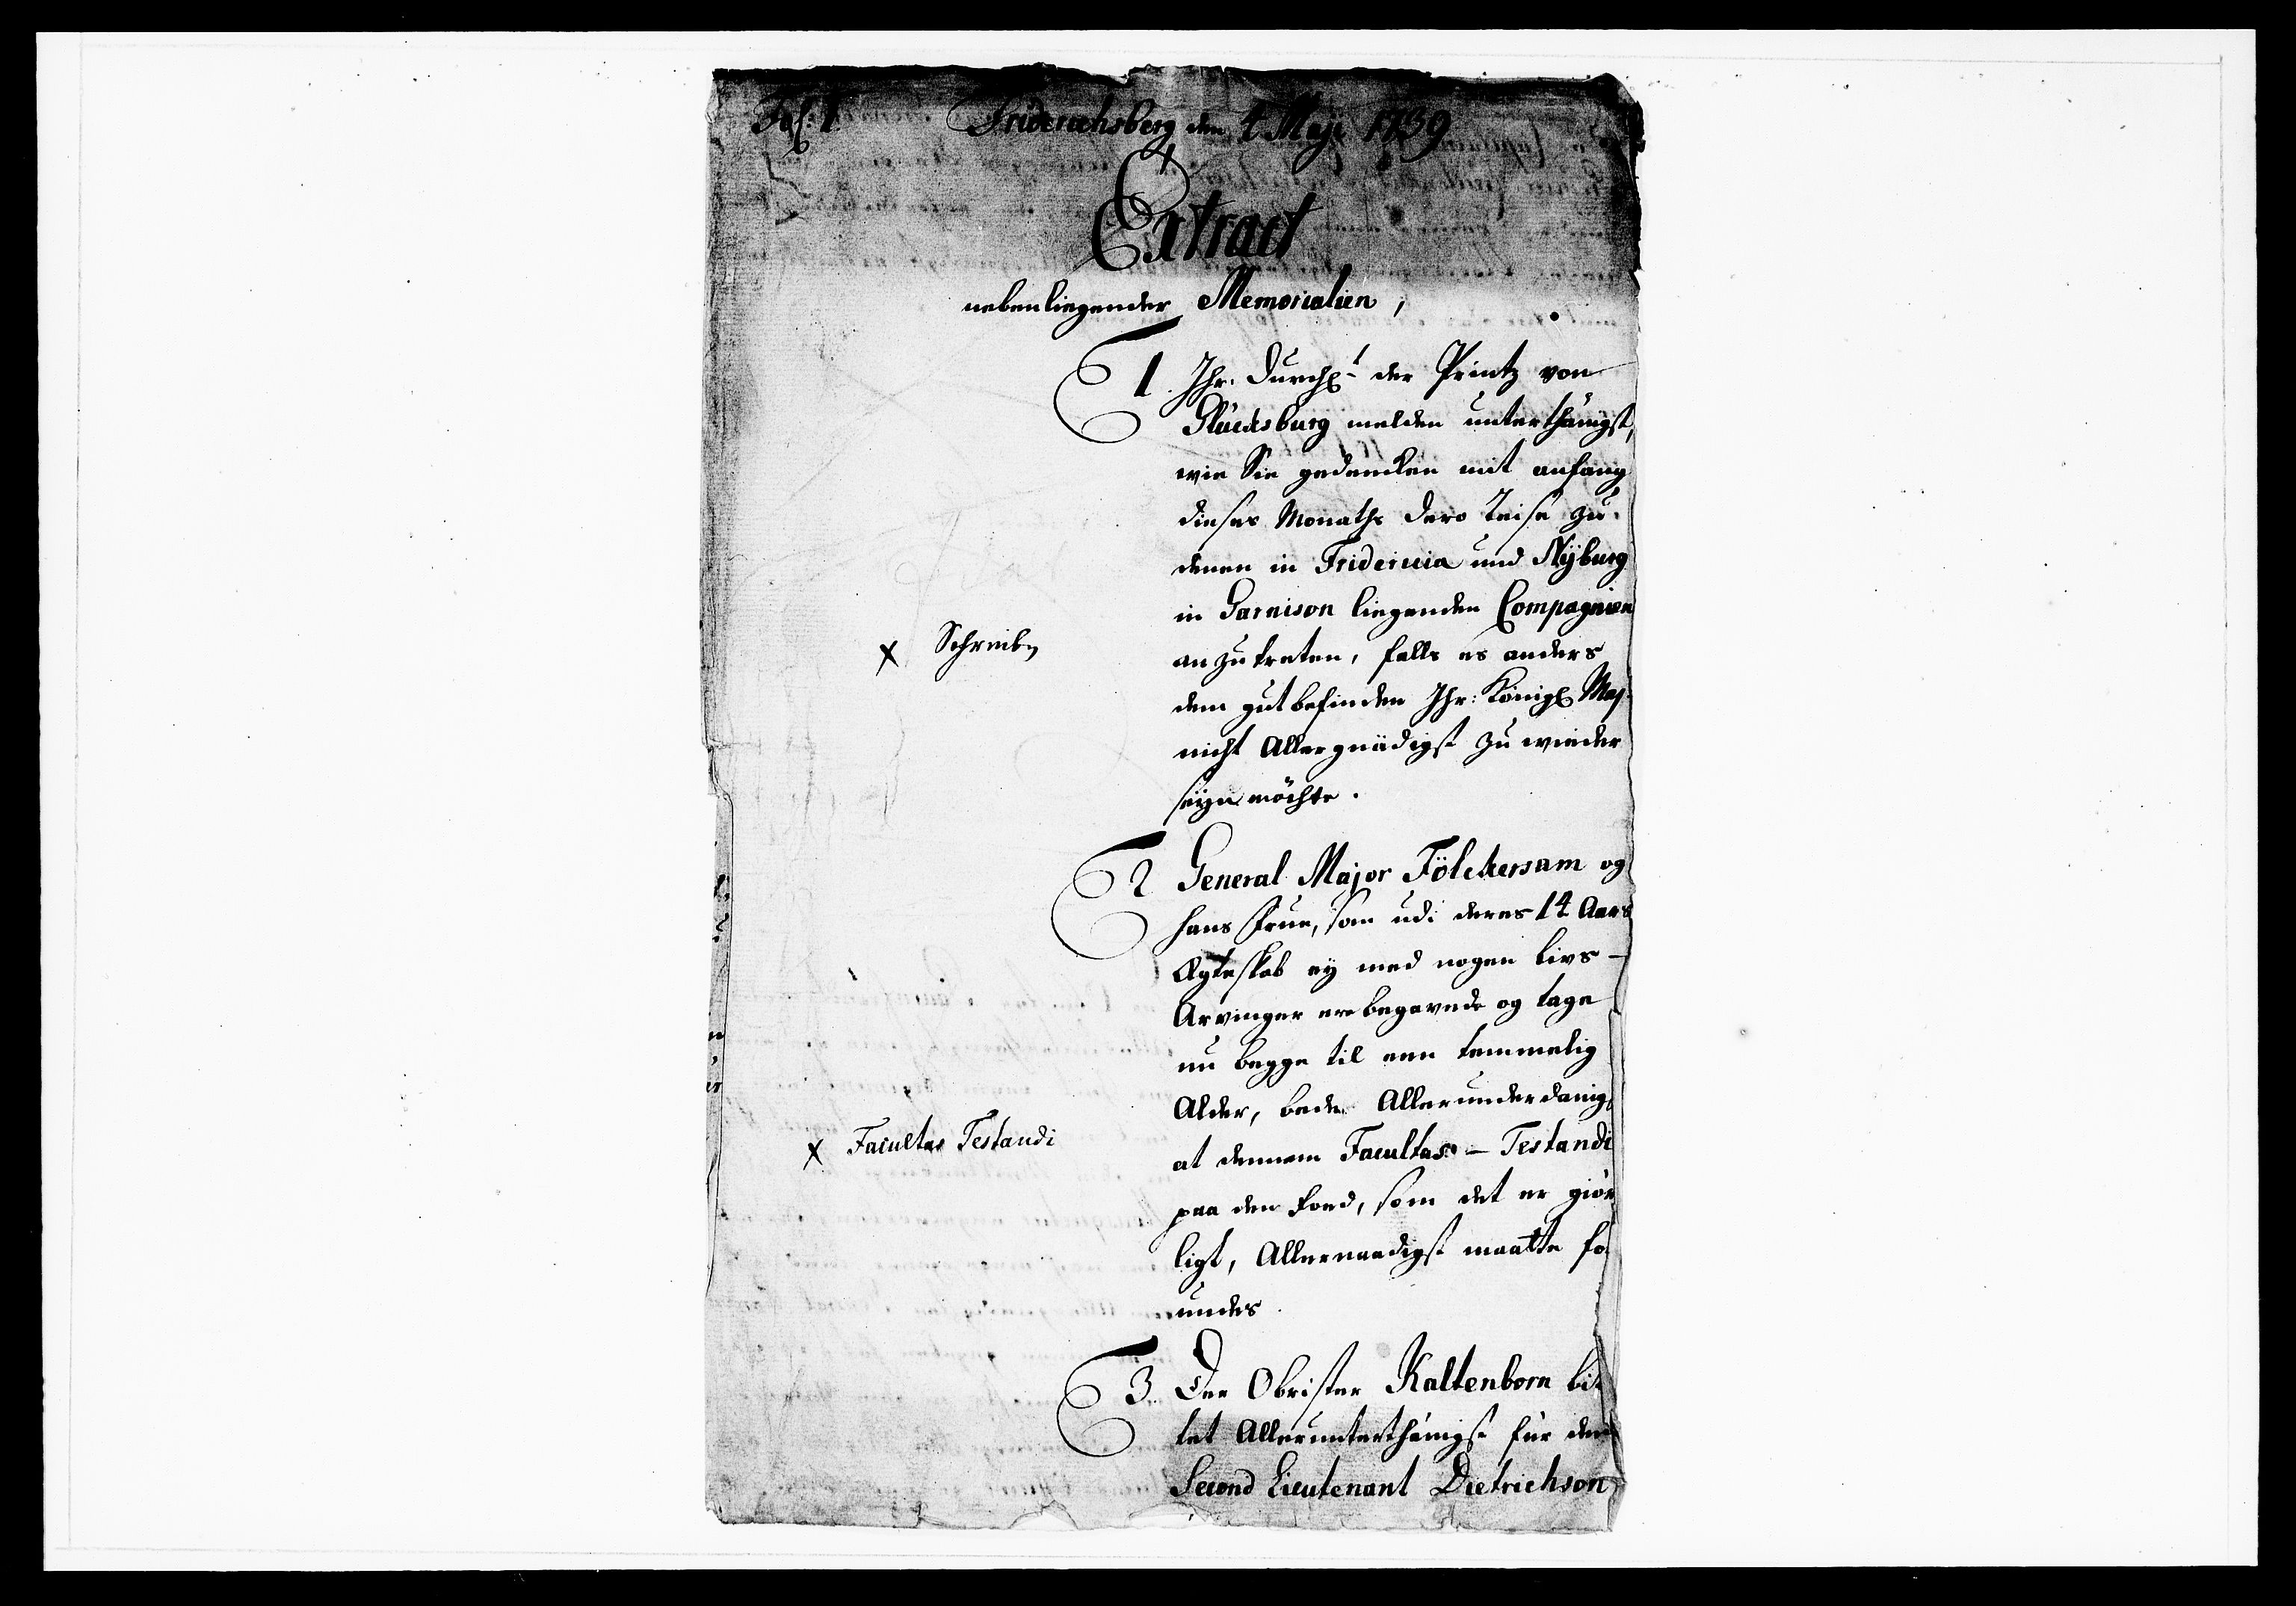 Fol: 1. Friderichsberg den 4 Maji 1739
Extract
nebenliegender Memorialien,
1. Ihr. Durchl. der Printz von
Glücksburg melden unterthänigst,
wie Sie gedencken mit anfang
dieses Monaths dero Reise zu
denen in Fridericia und Nyburg
in Garnison liegenden Compagnien
anzutreten, falls es anders
x Schreiben
dem gutbefinden Ihr: Königl Maj.
nicht Allergnädigst zu wieder
seyn möchte.
2 General Major Fölckersam og
hans Frue, som udi deres 14 Aars
Ægteskab ey med nogen livs-
Arvinger ere begavede og tage
nu begge til een temmelig
Alder, bede Allerunderdanigst
x Facultas Testandi
at dennem Facultas-Testandi
paa den Foed, som det er giør
ligt, Allernaadigst maatte for
undes.
3. Der Obrister Kaltenborn bit
tet Allerunterthänigst für den
Second Lieutenant Dietrichson